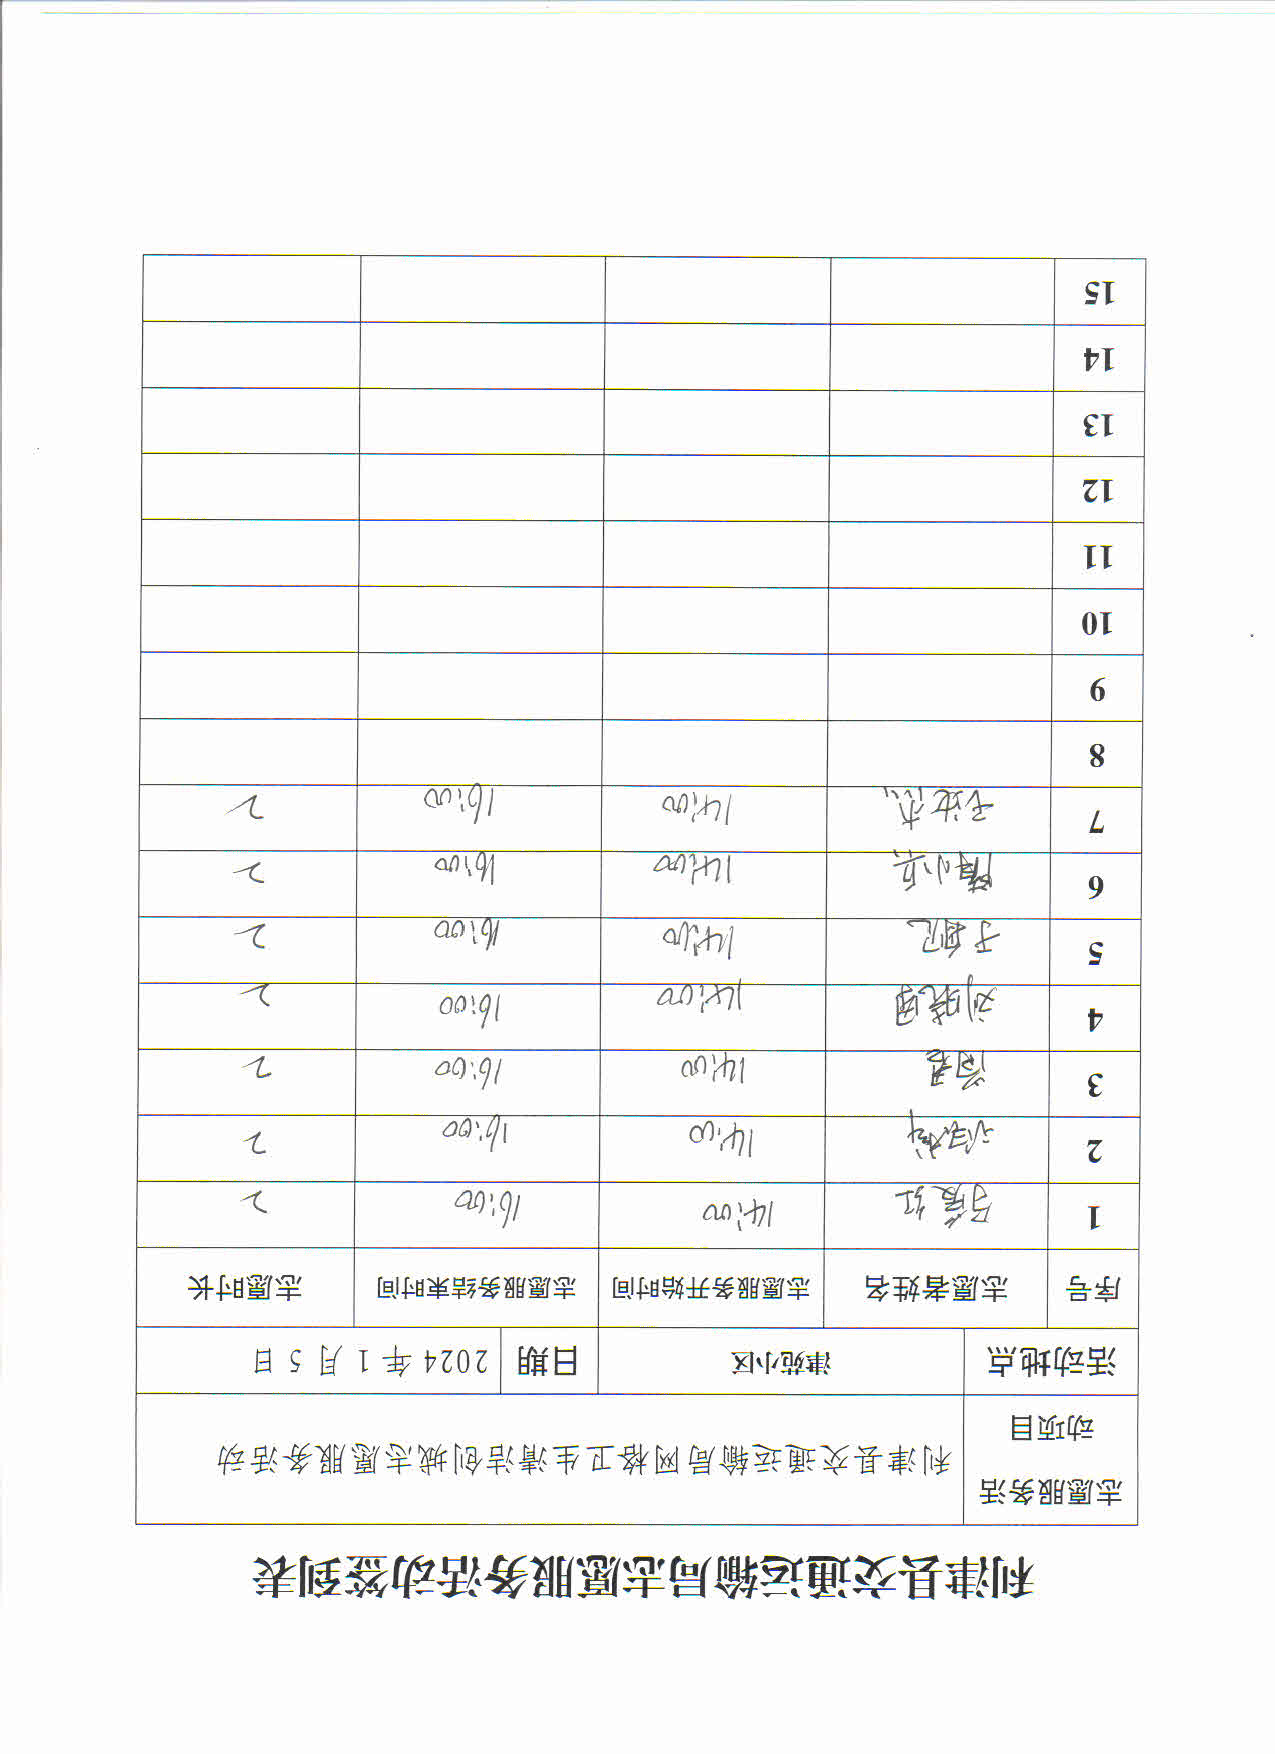 利津县交通运输局志愿服务活动签到表
志愿服务活动项目 利津县交通运输局网格卫生清洁创城志愿服务活动
活动地点 津苑小区 日期 2024年1月5日
序号 志愿者姓名 志愿服务开始时间 志愿服务结束时间 志愿时长
1 14:00 16:00 2
2 14:00 16:00 2
3 14:00 16:00 2
4 14:00 16:00 2
5 14:00 16:00 2
6 14:00 16:00 2
7 14:00 16:00 2
8
9
10
11
12
13
14
15